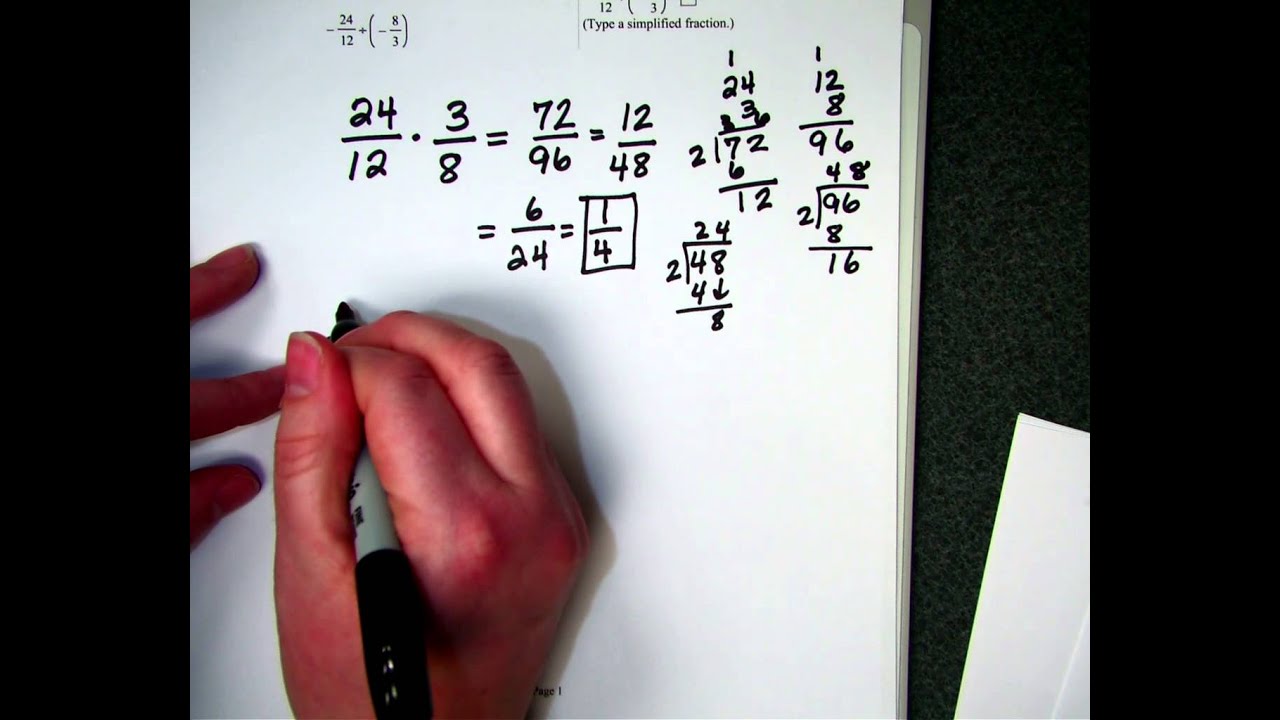 -24/12 ÷ (-8/3)
12 ( 3 )
(Type a simplified fraction.)
24/12 · 3/8 = 72/96 = 12/48
= 6/24 = 1/4
1
24
3
3 6
2 72
6
12
24
2 48
4↓
8
1
12
8
96
48
2 96
8
16
Page 1